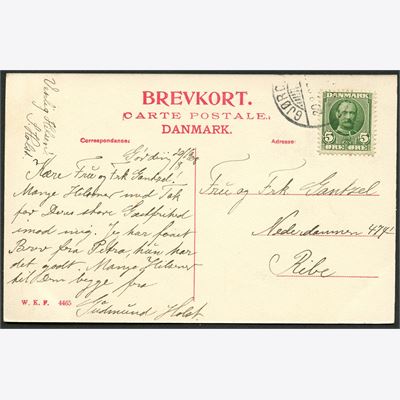 Venlig Hilsen
BREVKORT.
CARTE POSTALE.
DANMARK.
Correspondance: Adresse:
DANMARK
5 5
ØRE ØRE
GJØR
Kære Fru og Frk Gantzel!
Mange Hilsner med Tak
for Deres store Gæstfrihed
imod mig. Jeg har faaet
Brev fra Petra, hun har
det godt. Mange Hilsner
til Dem begge fra
Gudmund Holst.
Fru og Frk Gantzel
Nederdammen 474
Ribe
W. K. F. 4465